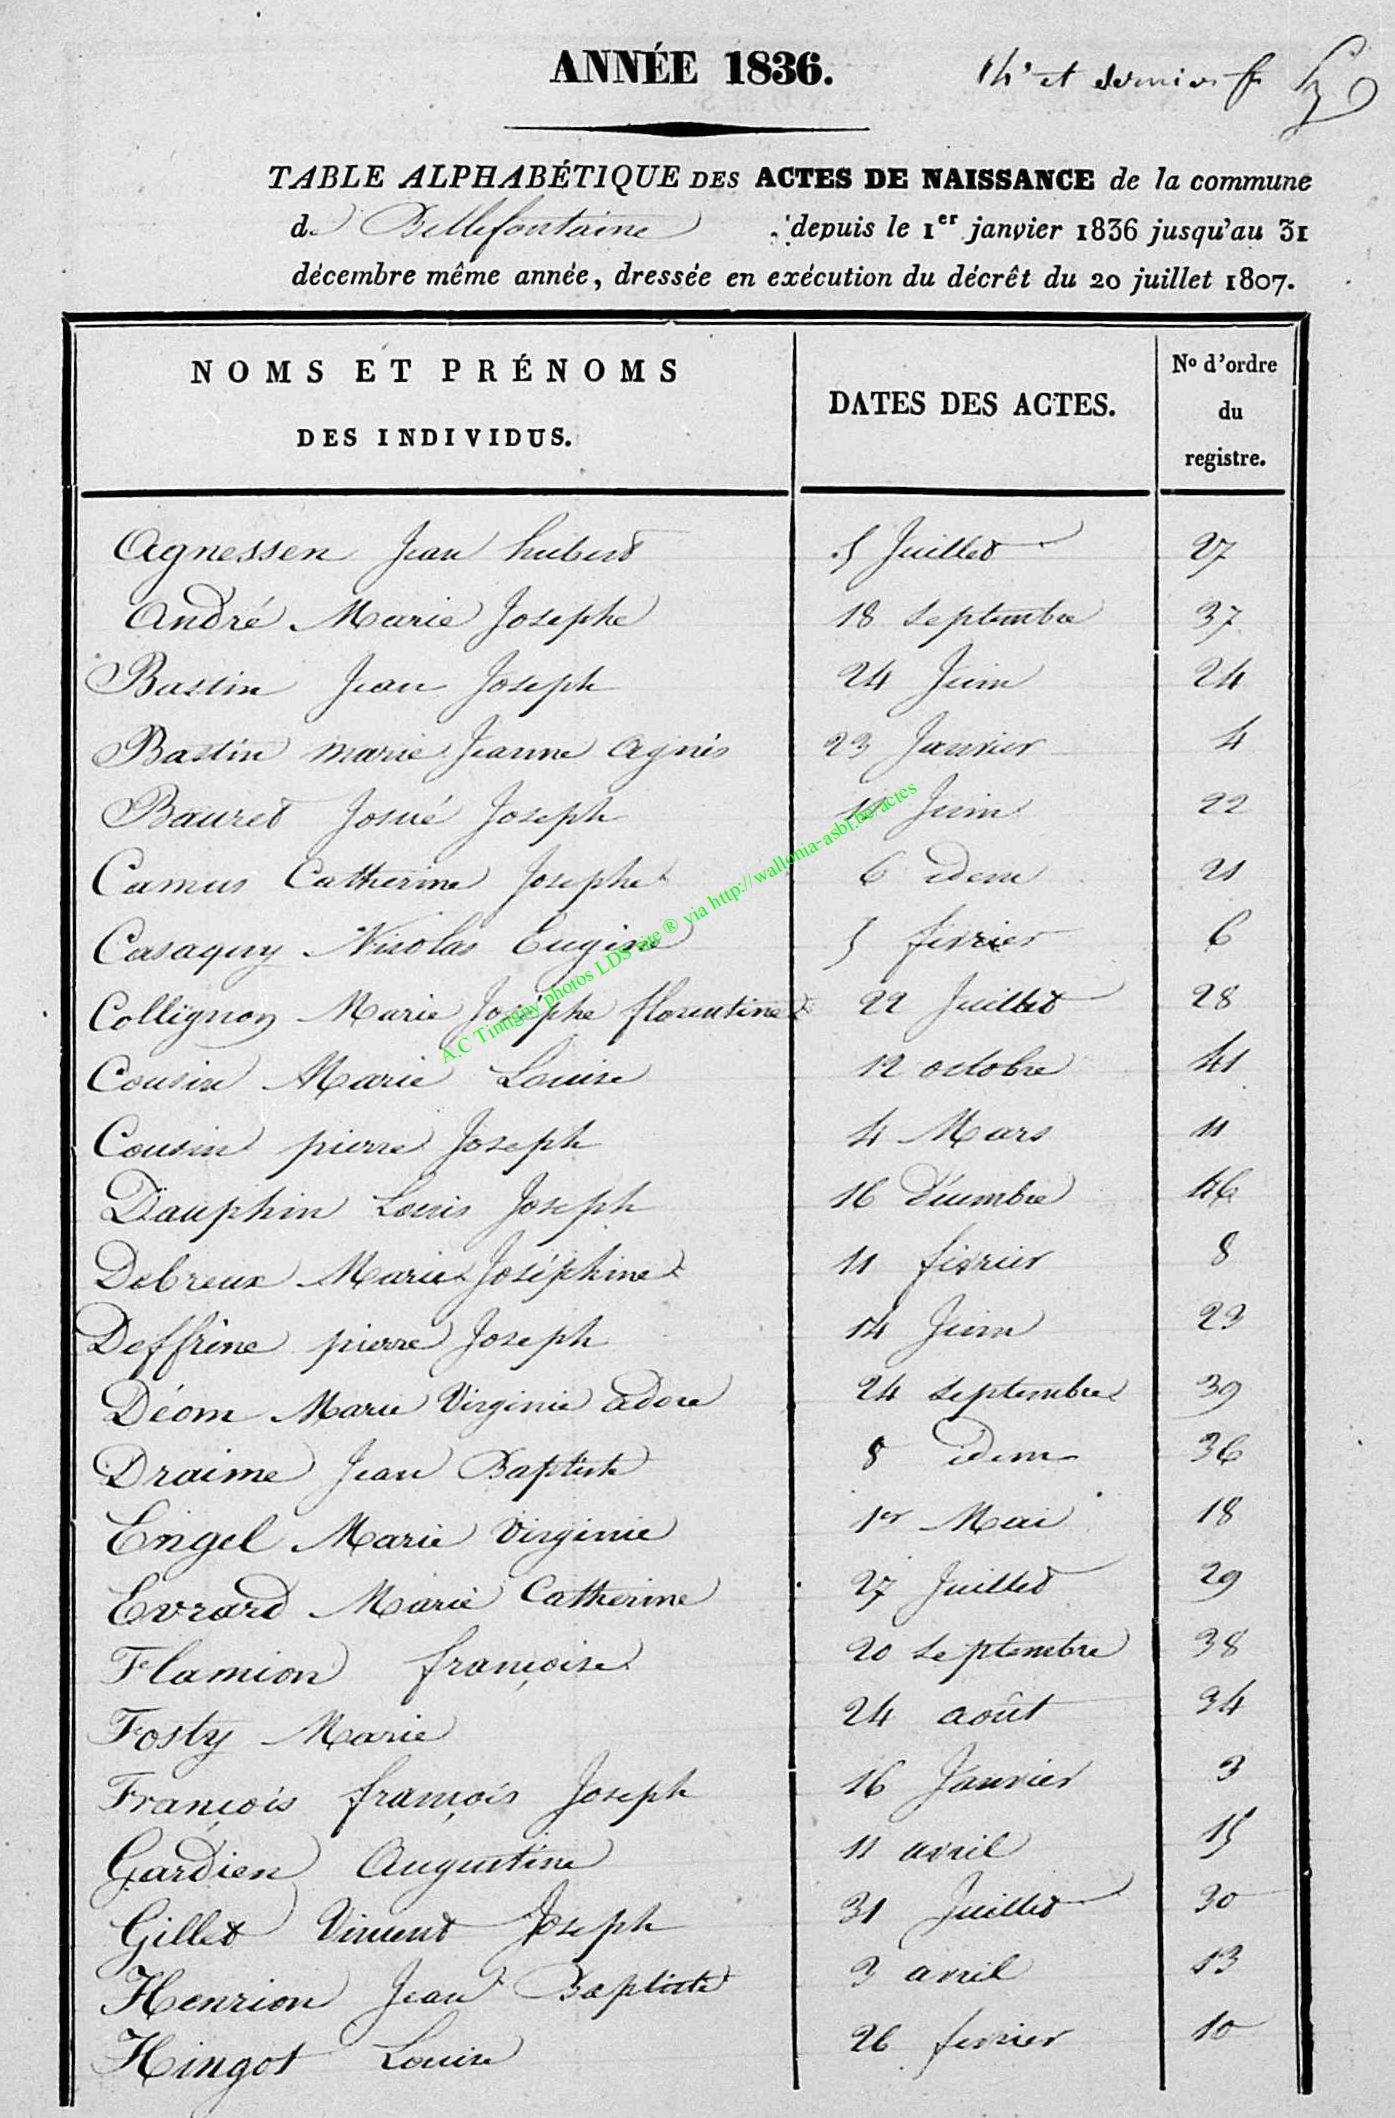 ANNÉE 1836.
14e et dernier f
TABLE ALPHABÉTIQUE DES ACTES DE NAISSANCE de la commune
de Bellefontaine depuis le 1er janvier 1836 jusqu'au 31
décembre même année, dressée en exécution du décrêt du 20 juillet 1807.
NOMS ET PRÉNOMS
DES INDIVIDUS.
DATES DES ACTES.
No d'ordre
du
registre.
Agnessen Jean hubert 5 Juillet 27
André Marie Josephe 18 septembre 37
Bastin Jean Joseph 24 Juin 24
Bastin marie Jeanne Agnès 23 Janvier 4
Bauret Josué Joseph 11 Juin 22
Camus Catherine Josephe 6 idem 21
Casaquy Nicolas Eugène 5 février 6
Collignon Marie Joséphe florentine 22 Juillet 28
Cousin Marie Louise 12 octobre 41
Cousin pierre Joseph 4 Mars 11
Dauphin Louis Joseph 16 décembre 46
Debreux Marie Joséphine 11 février 8
Deffrène pierre Joseph 14 Juin 23
Déom Marie Virginie adore 24 septembre 39
Draime Jean Baptiste 8 idem 36
Engel Marie Virginie 1er Mai 18
Evrard Marie Catherine 27 Juillet 29
Flamion françoise 20 septembre 38
Fosty Marie 24 août 34
François françois Joseph 16 Janvier 3
Gardien Augustine 11 avril 15
Gillet Vincent Joseph 31 Juillet 30
Henrion Jean Baptiste 3 avril 13
Hingot Louise 26 fevrier 10
A.C Tintigny photos LDS site ® via http://wallonia-asbl.be/actes